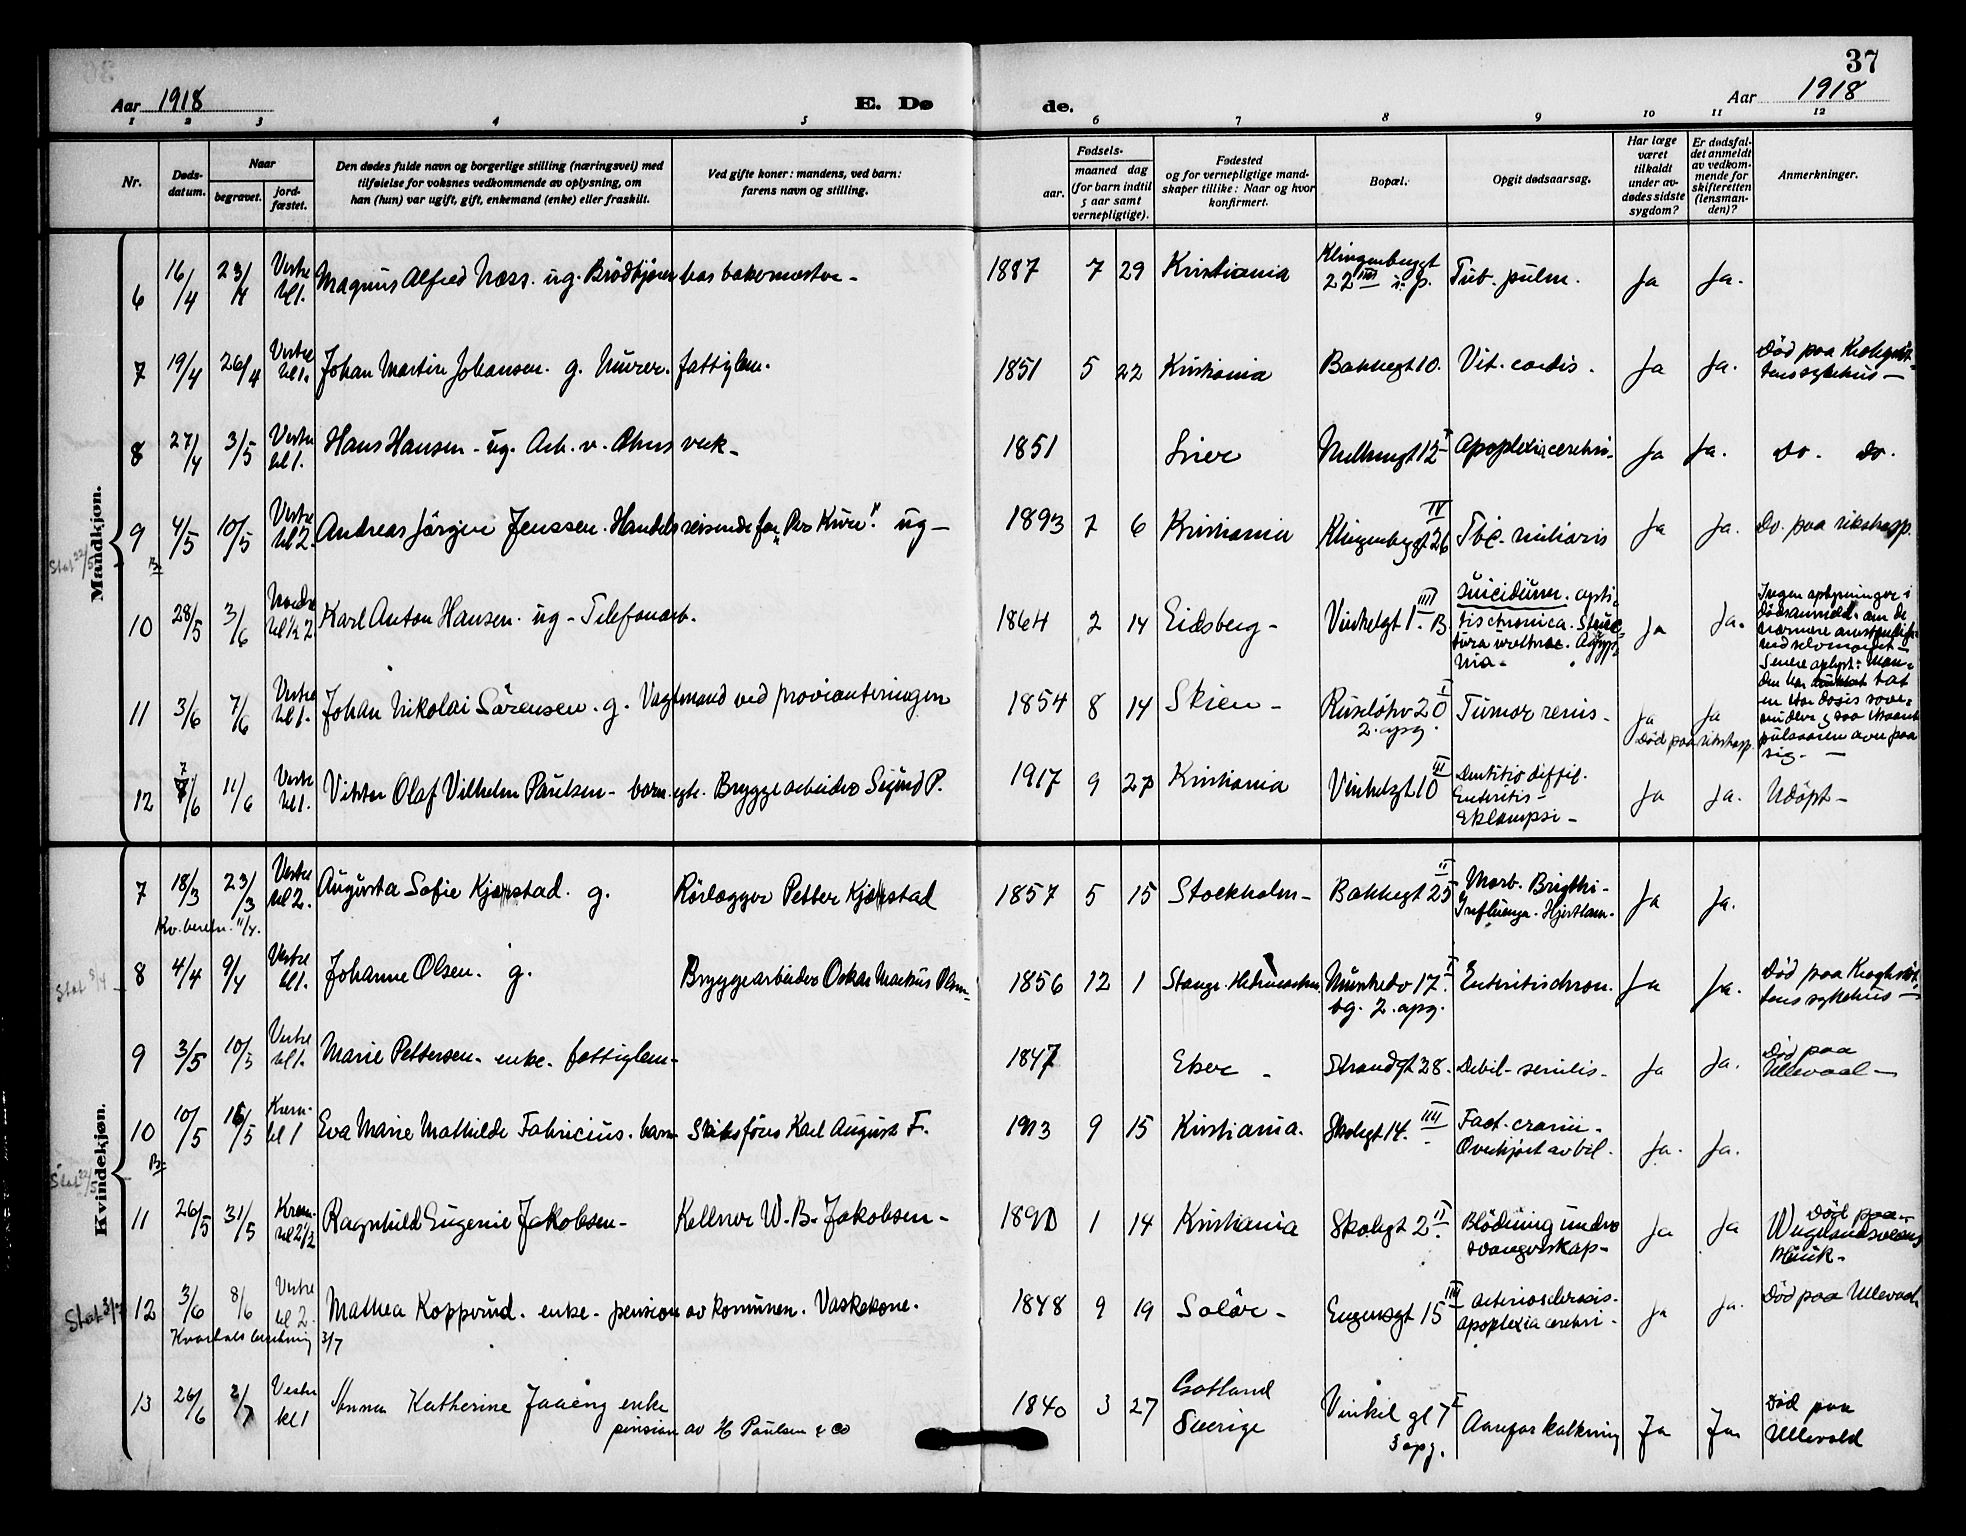 37
Aar 1918 E. Dø de. Aar 1918
1 2 3 4 5 6 7 8 9 10 11 12
Nr.
Døds-
datum.
Naar
begravet.
jord-
fæstet.
Den dødes fulde navn og borgerlige stilling (næringsvei) med
tilføielse for voksnes vedkommende av oplysning, om
han (hun) var ugift, gift, enkemand (enke) eller fraskilt.
Ved gifte koner: mandens, ved barn:
farens navn og stilling.
Fødsels-
aar.
maaned dag
(for barn indtil
5 aar samt
vernepligtige).
Fødested
og for vernepligtige mand-
skaper tillike: Naar og hvor
konfirmert.
Bopæl.
Opgit dødsaarsag.
Har læge
været
tilkaldt
under av-
dødes sidste
sygdom?
Er dødsfal-
det anmeldt
av vedkom-
mende for
skifteretten
(lensman-
den)?
Anmerkninger.
Mandkjøn.
6 16/4 23/4 Vestre kl 1. Magnus Alfred Næss. ug. Brödkjører hos bakermester - 1887 7 29 Kristiania Klingenberggt 22 III i. g. Tub. pulm. Ja Ja.
7 19/4 26/4 Vestre kl 1. Johan Martin Johansen. g. Murer. fattiglem. 1851 5 22 Kristiania Bakkegt 10. Vit. cordis. Ja Ja. Död paa Krohgstöttens sykehus -
8 27/4 3/5 Vestre kl 1. Hans Hansen - ug. Arb. v. Akers verk - 1851 Lier Munkengt 12 I Apoplexia cerebri - Ja Ja. Do. Do.
Stat 22/5
9 4/5 10/5 Vestre kl 2. Andreas Jörgen Jenssen. Handelsreisende for "Per Kure". ug - 1893 7 6 Kristiania Klingenberggt 26 IV Tbc. miliaris Ja Ja. Do. paa rikshosp.
10 28/5 3/6 Nordre kl 1/2 2 Karl Anton Hansen. ug - Telefonarb. 1864 2 14 Eidsberg - Vinkelgt 1. B III Suicidium. Cysti-
tis chronica. Stric-
tura urethrae. Ja Ja. Ingen oplysninger i
dödsanmeld. om de
nærmere omstændigh.
ved selvmordet -
Senere oplyst: Man-
den har tat
en stor dosis sove-
midler & saa skaaret
pulsaaren over paa
sig. -
11 3/6 7/6 Vestre kl 1. Johan Nikolai Sörensen. g. Vagtmand ved provianteringen 1854 8 14 Skien - Ruselökv 20 I
2. opg. Tumor renis - Ja Ja
Död paa rikshosp.
12 7/6 11/6 Vestre kl 1. Viktor Olaf Vilhelm Paulsen - barn. egte. Bryggearbeider Sigurd P. 1917 9 27 Kristiania Vinkelgt 10 III Dentitio diffil.
Enteritis -
Eklampsi - Ja Ja. Udöpt -
Kvindekjøn.
7 18/3 23/3 Vestre kl 2. Augusta Sofie Kjærstad. g. Rörlægger Petter Kjærstad 1857 5 15 Stockholm - Bakkegt 25 II Morb. Brigthi -
Influenza - Hjertlam - Ja Ja.
Kv. beretn. 11/4.
Stat 8/4
8 4/4 9/4 Vestre kl 1. Johanne Olsen. g. Bryggearbeider Oskar Markus Olsen - 1856 12 1 Stange. Hedemarken Munkedv 17 I
bg. 2. opg. Enteritis chron. Ja Ja. Död paa Kroghstöt-
tens sykehus -
9 3/5 10/5 Vestre kl 1. Marie Pettersen - enke. fattiglem - 1847 Eker - Strandgt 38. Debil. senilis - Ja Ja. Död paa
Ullevaal -
10 10/5 16/5 Krem. kl 1 Eva Marie Mathilde Fabricius. barn Skibsförer Karl August F. 1913 9 15 Kristiania. Skolegt 14. III Fract. cranii -
Overkjört av bil. Ja. Ja.
Stat 22/5
11 26/5 31/5 Krem. kl 2 1/2 Ragnhild Eugenie Jakobsen - Kellner W. B. Jakobsen - 1890 1 14 Kristiania Skolegt 2 II Blödning under
svangerskap - Ja Ja Död paa
klinik -
Stat 3/7
12 3/6 8/6 Vestre kl 2. Mathea Kopperud. enke - pension av komunen. Vaskekone. 1848 9 19 Solör - Eugensgt 15 III Arteriosclerosis.
apoplexia cerebri - Ja Ja. Död paa Ullevaal
Kvartals beretning 3/7
13 26/6 2/7 Vestre kl 1 Anna Katherine Jaaeng enke
pension av H Paulsen & Co 1840 3 27 Gotland
Sverige Vinkel gt 7 I
3 opg. Aareforkalkning Ja Ja Död paa
Ullevold